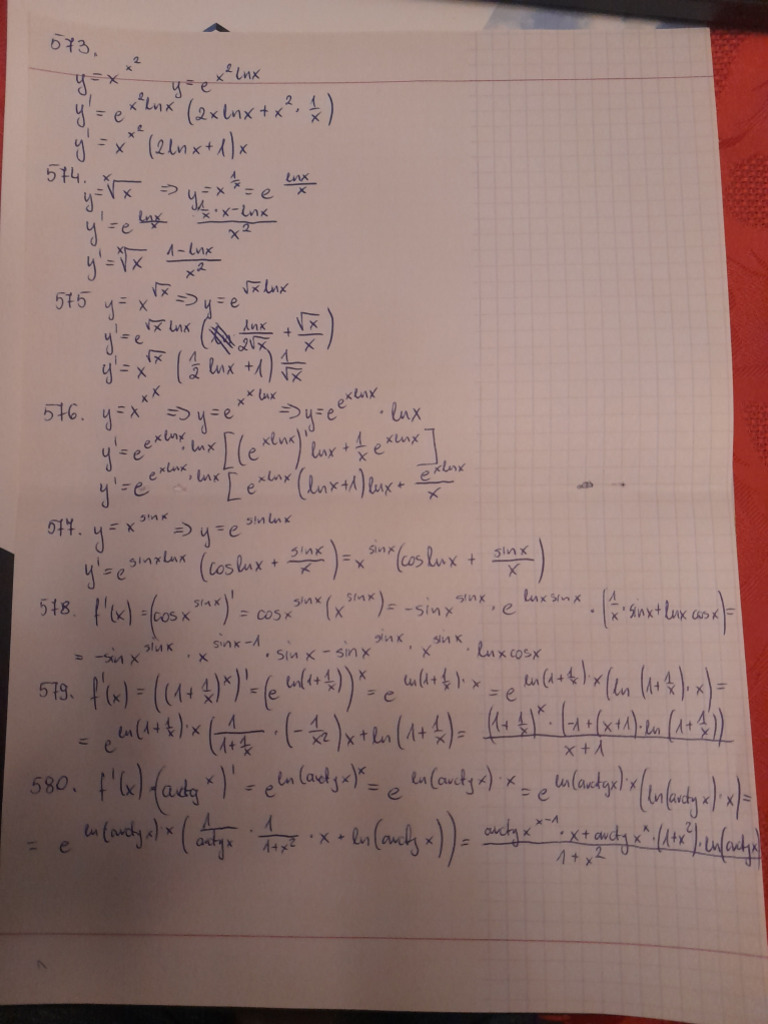 573.
y = x^{x^2}   y = e^{x^2 lnx}
y' = e^{x^2 lnx} (2x lnx + x^2 · 1/x)
y' = x^{x^2} (2lnx + 1) x
574. y = \sqrt[x]{x} => y = x^{1/x} = e^{lnx/x}
y' = e^{lnx/x} (1/x · x - lnx)/x^2
y' = \sqrt[x]{x} (1 - lnx)/x^2
575 y = x^{√x} => y = e^{√x lnx}
y' = e^{√x lnx} (lnx/(2√x) + √x/x)
y' = x^{√x} (1/2 lnx + 1) 1/√x
576. y = x^{x^x} => y = e^{x^x lnx} => y = e^{e^{xlnx} · lnx}
y' = e^{e^{xlnx} · lnx} [(e^{xlnx})' lnx + 1/x e^{xlnx}]
y' = e^{e^{xlnx} · lnx} [e^{xlnx} (lnx+1) lnx + e^{xlnx}/x
577. y = x^{sinx} => y = e^{sinlnx}
y' = e^{sinxlnx} (coslnx + sinx/x) = x^{sinx} (coslnx + sinx/x)
578. f'(x) = (cosx^{sinx})' = cosx^{sinx} (x^{sinx}) = -sinx^{sinx} · e^{lnx sinx} · (1/x · sinx + lnx cosx) =
= -sinx^{sinx} · x^{sinx-1} · sinx - sinx^{sinx} · x^{sinx} · lnxcosx
579. f'(x) = ((1 + 1/x)^x)' = (e^{ln(1+1/x)})^x = e^{ln(1+1/x) · x} = e^{ln(1+1/x) · x} (ln(1 + 1/x) · x) =
= e^{ln(1+1/x) · x} (1/(1+1/x) · (-1/x^2) x + ln(1 + 1/x) = ((1+1/x)^x · (-1 + (x+1) · ln(1+1/x)))/(x+1)
580. f'(x) = (arctg^x)' = e^{ln(arctgx)^x} = e^{ln(arctgx) · x} = e^{ln(arctgx) · x} (ln(arctgx) · x) =
= e^{ln(arctgx) · x} (1/arctgx · 1/(1+x^2) · x + ln(arctgx)) = (arctgx^{x-1} · x + arctgx^x · (1+x^2) · ln(arctgx)/(1+x^2)